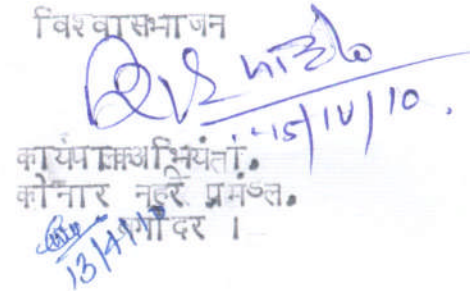 विश्वासभाजन
15/IV/10.
कार्यपालक अभियंता.
कोनार नहर प्रमंडल.
बगोदर ।
13/4/10